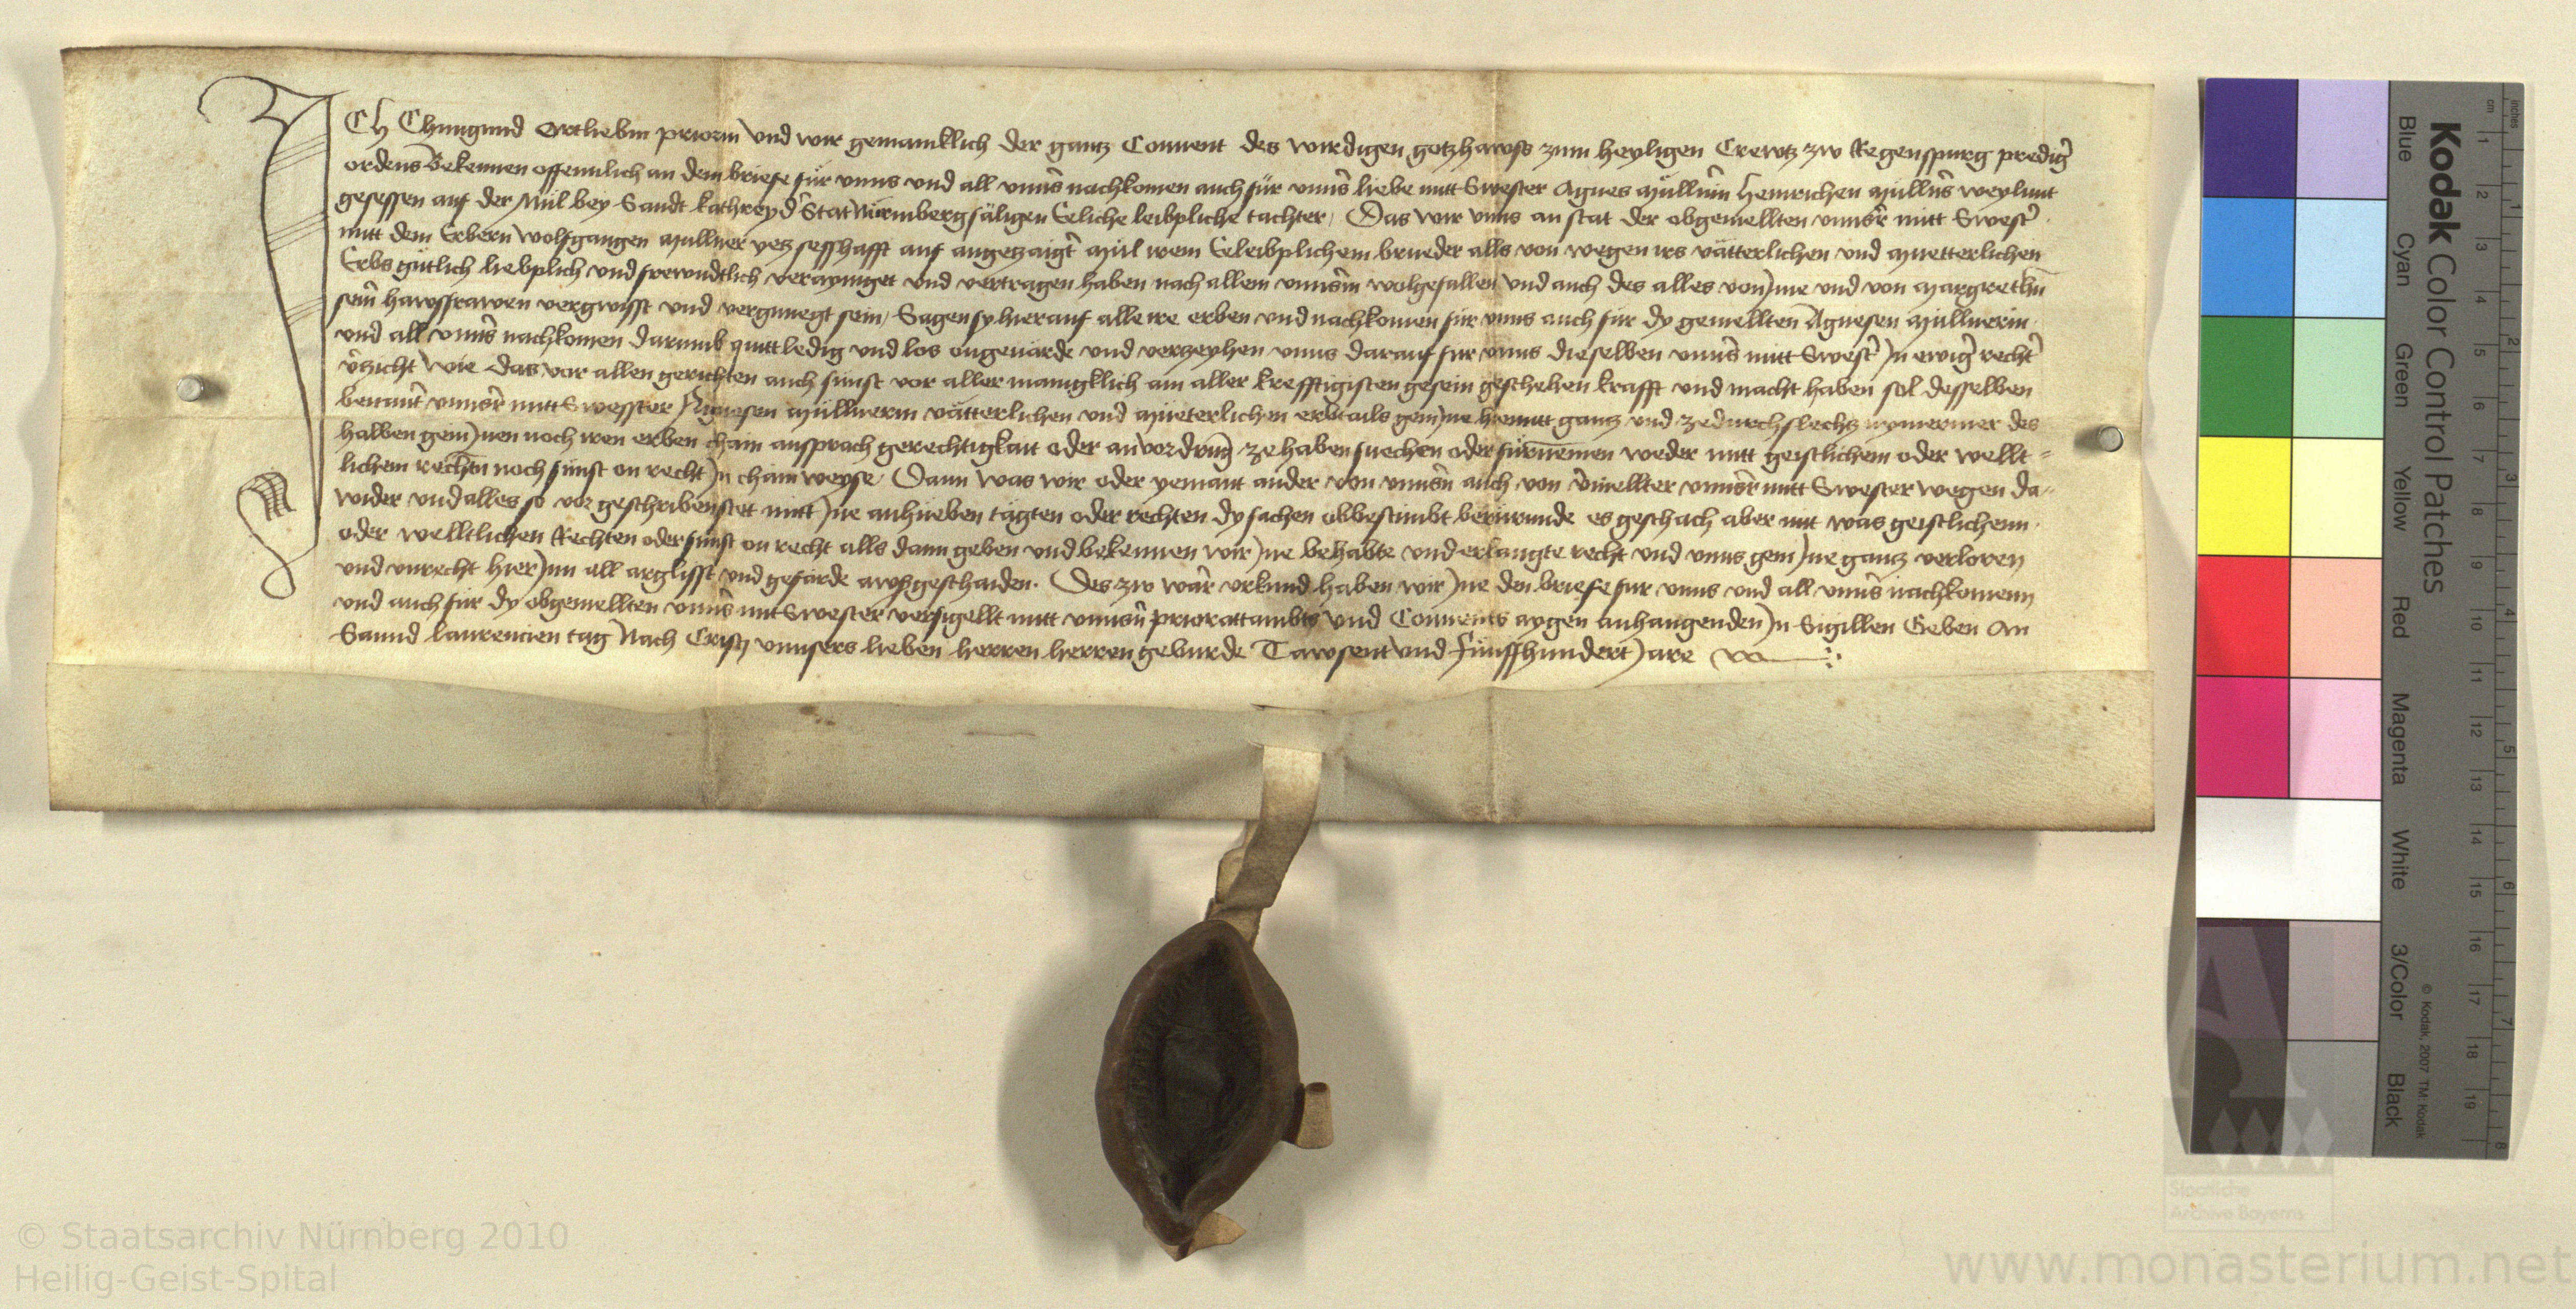 ICh Chungund Ortliebin priorin vnd wir gemainklich der gantz Conuent des wirdigen gotzhawss zum heyligen Crewtz zw Regenspurg prediger
ordens Bekennen offennlich an dem briefe für vnns vnd all vnnser nachkomen auch für vnnser liebe mitt Swester Agnes Müllnerin Heinrichen Müllners weylunt
gesessen auf der Mül bey Sandt kathrey der Stat Nürmberg säligen Eeliche leibpliche tachter, Das wir vnns an stat der obgemellten vnnser mitt Swester
mitt dem Erbern Wolfgangen Müllner yetz sesshafft auf angetzaigter Mül irem Eeleibplichem brueder alls von wegen irs vätterlichen vnd Muetterlichen
Erbs gütlich lieblich vnd frewndtlich verayniget vnd vertragen haben nach allem vnnserm wolgefallen vnd auch des alles von Jme vnd von Margrethen
seiner hawsfrawen vergwisst vnd vergnuegt sein, Sagen sy hierauf alle ire erben vnd nachkomen für vnns auch für dy gemellten Agnesen Müllnerin
vnd all vnnser nachkomen darumb quitt ledig vnd los ongeuärde vnd verzeyhen vnns darauf für vnns dieselben vnnser mitt Swester Jn ewiger rechter
verzicht wie das vor allen gerichten auch sünst vor aller manigklich am aller krefftigisten gesein geschehen krafft vnd macht haben sol desselben
benannt vnnser mitt Swesster Agnesen Müllnerin vätterlichen vnd Müeterlichen erbtails gein Jme hiemitt gantz vnd zedurchslechtz nymermer des
halben gein Jnen noch iren erben chain ansprach gerechtigkait oder anvordrung ze haben suechen oder fürnemen weder mitt geistlichem oder wellt=
lichem rechten noch sünst on recht Jn chain weyse, Dann was wir oder yemant ander von vnnsern auch von vermellter vnnser mitt Swester wegen da=
wider vnd alles so vor geschriben stet mitt Jne anhueben tägten oder rechten dy sachen obbestimbt berürende es geschach aber mit was geistlichenn
oder welltlichen Rechten oder sünst on recht alls dann geben vnd bekennen wir Jne behabte vnd erlangte recht vnd vnns gein Jne gantz verloren
vnd vnrecht hier Jnn all arglisst vnd gefärde awsgeschaiden. Des zw warer vrkund haben wir Jne den briefe für vnns vnd all vnnser nachkomenn
vnd auch für dy obgemellten vnnser mit Swester versigellt mitt vnnsern priorattambts vnd Conuents aygen anhangenden Jn Sigillen Geben An
Sannd laurencien tag Nach Cristj vnnsers lieben herren herren geburde Tawsent vnd fünffhundert Jare
Kodak Color Control Patches
Blue Cyan Green Yellow Red Magenta White 3/Color Black
© Kodak, 2007 TM: Kodak
cm 1 2 3 4 5 6 7 8 9 10 11 12 13 14 15 16 17 18 19
inches 1 2 3 4 5 6 7 8
Staatliche
Archive Bayerns
© Staatsarchiv Nürnberg 2010
Heilig-Geist-Spital
www.monasterium.net